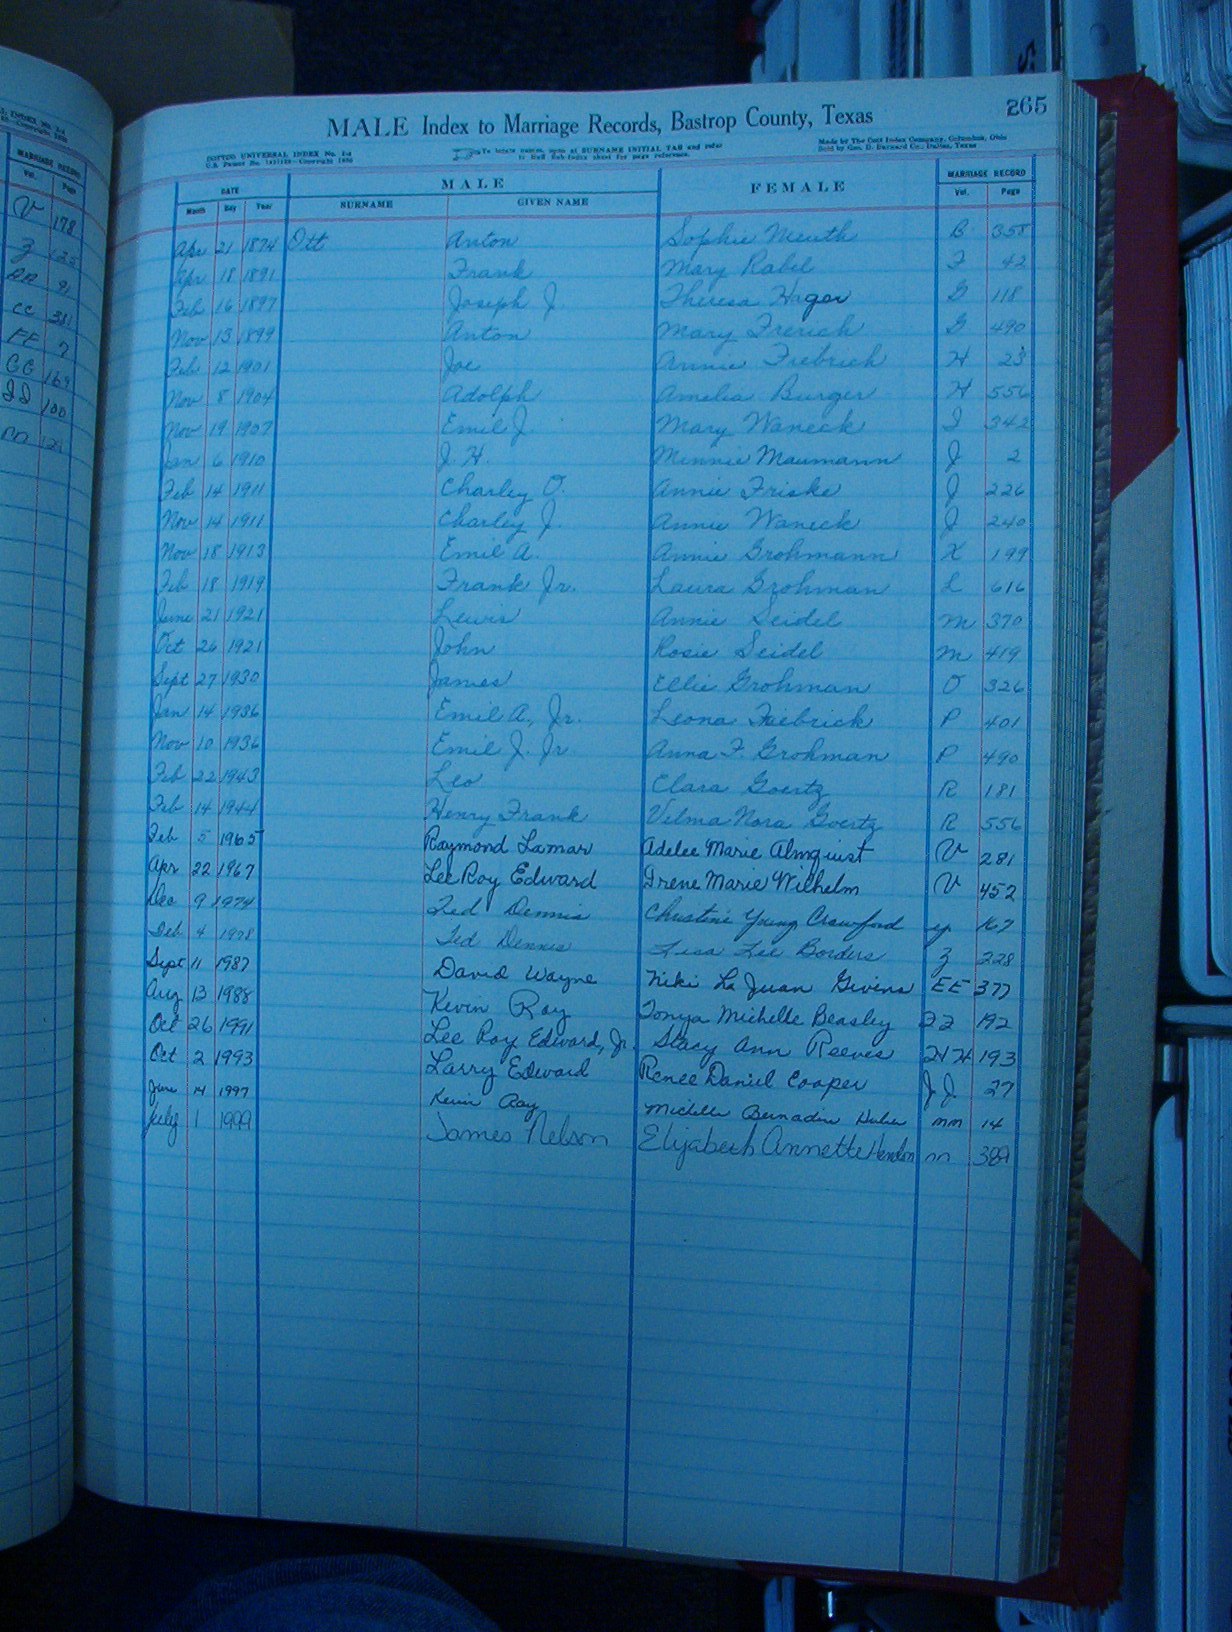 265
MALE Index to Marriage Records, Bastrop County, Texas
COTT UNIVERSAL INDEX No. To locate names, open at SURNAME INITIAL TAB and refer Made by The Cott Index Company, Columbus, Ohio
U.S. Patent No. Copyright to Buff Sub-Index sheet for page reference. Sold by Geo. D. Barnard Co., Dallas, Texas
DATE MALE FEMALE MARRIAGE RECORD
Month Day Year SURNAME GIVEN NAME Vol. Page
Apr 21 1874 Ott Anton Sophie Meuth B 355
Apr 18 1891 Frank Mary Rabel F 42
Feb 16 1897 Joseph J. Theresa Hager G 118
Nov 13 1899 Anton Mary Frerich G 490
Feb 12 1901 Joe Annie Fiebrich H 23
Nov 8 1904 Adolph Amelia Burger H 556
Nov 19 1907 Emil J. Mary Waneck I 342
Jan 6 1910 J. H. Minnie Maumann J 2
Feb 14 1911 Charley O. Annie Friske J 226
Nov 14 1911 Charley J. Annie Waneck J 240
Nov 18 1913 Emil A. Annie Grohmann K 199
Feb 18 1919 Frank Jr. Laura Grohman L 616
June 21 1921 Lewis Annie Seidel M 370
Oct 26 1921 John Rosie Seidel M 419
Sept 27 1930 James Ellie Grohman O 326
Jan 14 1936 Emil A., Jr. Leona Fiebrick P 401
Nov 10 1936 Emil J. Jr. Anna F. Grohman P 490
Feb 22 1943 Leo Clara Goertz R 181
Feb 14 1944 Henry Frank Velma Nora Goertz R 556
Feb 5 1965 Raymond Lamar Adelee Marie Almquist V 281
Apr 22 1967 Lee Roy Edward Irene Marie Wilhelm V 452
Dec 9 1974 Ted Dennis Christine Young Crawford y 167
Feb 4 1978 Ted Dennis Lisa Lee Borders Z 228
Sept 11 1987 David Wayne Niki La Juan Givens EE 377
Aug 13 1988 Kevin Roy Tonya Michelle Beasley 192
Oct 26 1991 Lee Roy Edward, Jr. Stacy Ann Reeves HH 193
Oct 2 1993 Larry Edward Renee Daniel Cooper JJ 27
June 14 1997 Kevin Ray Michelle Bernadine mm 14
July 1 1999 James Nelson Elizabeth Annette Hendon m 389
MARRIAGE RECORD
Vol. Page
V 178
Z 122
AA 9
CC 381
FF 7
GG 169
II 100
m 129